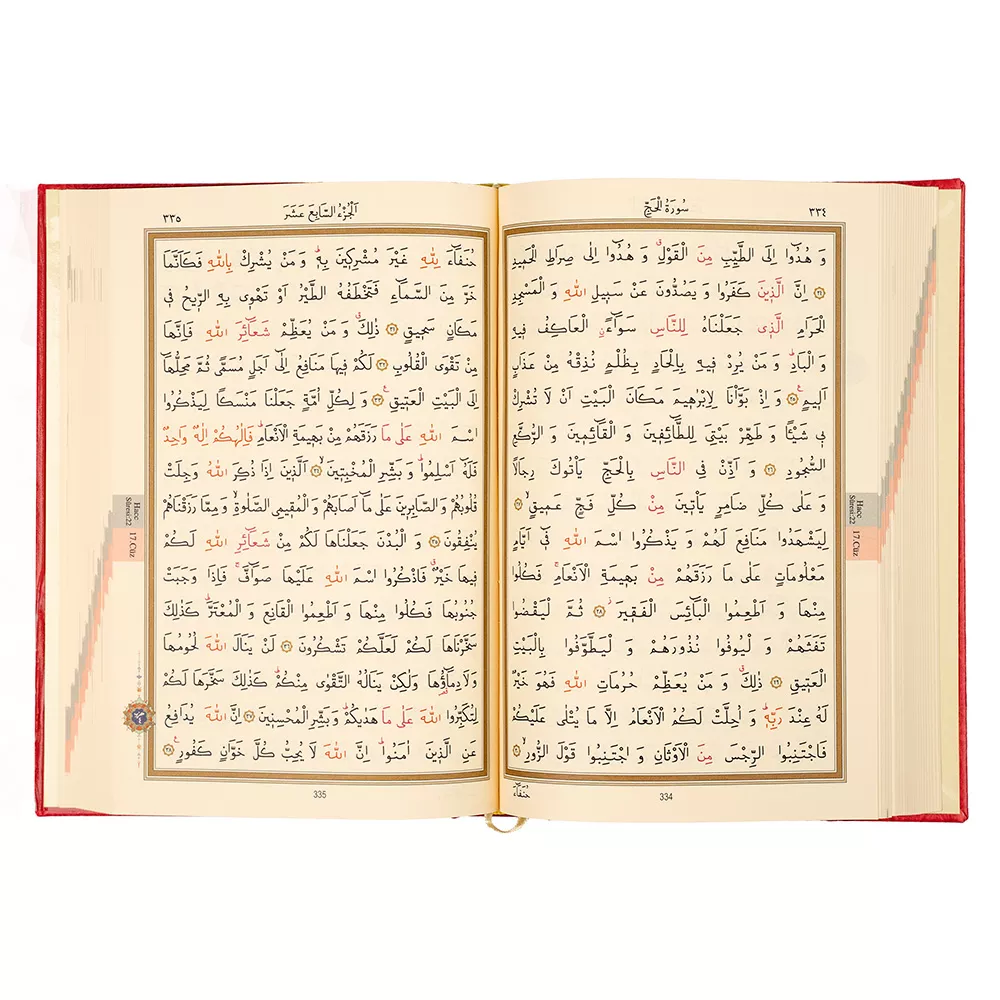 ٣٣٤
سُورَةُ الْحَجِّ
وَ هُدُٓوا اِلَى الطَّيِّبِ مِنَ الْقَوْلِۚ وَ هُدُٓوا اِلٰى صِرَاطِ الْحَمٖيدِ
﴿٢٤﴾ اِنَّ الَّذٖينَ كَفَرُوا وَ يَصُدُّونَ عَنْ سَبٖيلِ اللّٰهِ وَ الْمَسْجِدِ
الْحَرَامِ الَّذٖي جَعَلْنَاهُ لِلنَّاسِ سَوَٓاءًۨ الْعَاكِفُ فٖيهِ
وَ الْبَادِؕ وَ مَنْ يُرِدْ فٖيهِ بِاِلْحَادٍ بِظُلْمٍ نُذِقْهُ مِنْ عَذَابٍ
اَلٖيمٍ ﴿٢٥﴾ وَ اِذْ بَوَّاْنَا لِاِبْرٰهٖيمَ مَكَانَ الْبَيْتِ اَنْ لَا تُشْرِكْ
بٖي شَيْـًٔا وَ طَهِّرْ بَيْتِيَ لِلطَّٓائِفٖينَ وَ الْقَٓائِمٖينَ وَ الرُّكَّعِ
السُّجُودِ ﴿٢٦﴾ وَ اَذِّنْ فِي النَّاسِ بِالْحَجِّ يَاْتُوكَ رِجَالًا
وَ عَلٰى كُلِّ ضَامِرٍ يَاْتٖينَ مِنْ كُلِّ فَجٍّ عَمٖيقٍۙ ﴿٢٧﴾
لِيَشْهَدُوا مَنَافِعَ لَهُمْ وَ يَذْكُرُوا اسْمَ اللّٰهِ فٖٓي اَيَّامٍ
مَعْلُومَاتٍ عَلٰى مَا رَزَقَهُمْ مِنْ بَهٖيمَةِ الْاَنْعَامِۚ فَكُلُوا
مِنْهَا وَ اَطْعِمُوا الْبَٓائِسَ الْفَقٖيرَؗ ﴿٢٨﴾ ثُمَّ لْيَقْضُوا
تَفَثَهُمْ وَ لْيُوفُوا نُذُورَهُمْ وَ لْيَطَّوَّفُوا بِالْبَيْتِ
الْعَتٖيقِ ﴿٢٩﴾ ذٰلِكَۗ وَ مَنْ يُعَظِّمْ حُرُمَاتِ اللّٰهِ فَهُوَ خَيْرٌ
لَهُ عِنْدَ رَبِّهٖؕ وَ اُحِلَّتْ لَكُمُ الْاَنْعَامُ اِلَّا مَا يُتْلٰى عَلَيْكُمْ
فَاجْتَنِبُوا الرِّجْسَ مِنَ الْاَوْثَانِ وَ اجْتَنِبُوا قَوْلَ الزُّورِۙ ﴿٣٠﴾
حُنَفَٓاءَ
334
Hacc
Sûresi:22
17.Cüz
٣٣٥
اَلْجُزْءُ السَّابِعَ عَشَرَ
حُنَفَٓاءَ لِلّٰهِ غَيْرَ مُشْرِكٖينَ بِهٖؕ وَ مَنْ يُشْرِكْ بِاللّٰهِ فَكَاَنَّمَا
خَرَّ مِنَ السَّمَٓاءِ فَتَخْطَفُهُ الطَّيْرُ اَوْ تَهْوٖي بِهِ الرّٖيحُ فٖي
مَكَانٍ سَحٖيقٍ ﴿٣١﴾ ذٰلِكَۗ وَ مَنْ يُعَظِّمْ شَعَٓائِرَ اللّٰهِ فَاِنَّهَا
مِنْ تَقْوَى الْقُلُوبِ ﴿٣٢﴾ لَكُمْ فٖيهَا مَنَافِعُ اِلٰٓى اَجَلٍ مُسَمًّى ثُمَّ مَحِلُّهَٓا
اِلَى الْبَيْتِ الْعَتٖيقِ ﴿٣٣﴾ وَ لِكُلِّ اُمَّةٍ جَعَلْنَا مَنْسَكًا لِيَذْكُرُوا
اسْمَ اللّٰهِ عَلٰى مَا رَزَقَهُمْ مِنْ بَهٖيمَةِ الْاَنْعَامِؕ فَاِلٰهُكُمْ اِلٰهٌ وَاحِدٌ
فَلَهُٓ اَسْلِمُواؕ وَ بَشِّرِ الْمُخْبِتٖينَۙ ﴿٣٤﴾ اَلَّذٖينَ اِذَا ذُكِرَ اللّٰهُ وَجِلَتْ
قُلُوبُهُمْ وَ الصَّابِرٖينَ عَلٰى مَٓا اَصَابَهُمْ وَ الْمُقٖيمِي الصَّلٰوةِۙ وَ مِمَّا رَزَقْنَاهُمْ
يُنْفِقُونَ ﴿٣٥﴾ وَ الْبُدْنَ جَعَلْنَاهَا لَكُمْ مِنْ شَعَٓائِرِ اللّٰهِ لَكُمْ
فٖيهَا خَيْرٌۗ فَاذْكُرُوا اسْمَ اللّٰهِ عَلَيْهَا صَوَٓافَّۚ فَاِذَا وَجَبَتْ
جُنُوبُهَا فَكُلُوا مِنْهَا وَ اَطْعِمُوا الْقَانِعَ وَ الْمُعْتَرَّؕ كَذٰلِكَ
سَخَّرْنَاهَا لَكُمْ لَعَلَّكُمْ تَشْكُرُونَ ﴿٣٦﴾ لَنْ يَنَالَ اللّٰهَ لُحُومُهَا
وَلَا دِمَٓاؤُهَا وَلٰكِنْ يَنَالُهُ التَّقْوٰى مِنْكُمْؕ كَذٰلِكَ سَخَّرَهَا لَكُمْ
لِتُكَبِّرُوا اللّٰهَ عَلٰى مَا هَدٰيكُمْؕ وَ بَشِّرِ الْمُحْسِنٖينَ ﴿٣٧﴾ اِنَّ اللّٰهَ يُدَافِعُ
عَنِ الَّذٖينَ اٰمَنُواؕ اِنَّ اللّٰهَ لَا يُحِبُّ كُلَّ خَوَّانٍ كَفُورٍۚ ﴿٣٨﴾
335
Hacc
Sûresi:22
17.Cüz